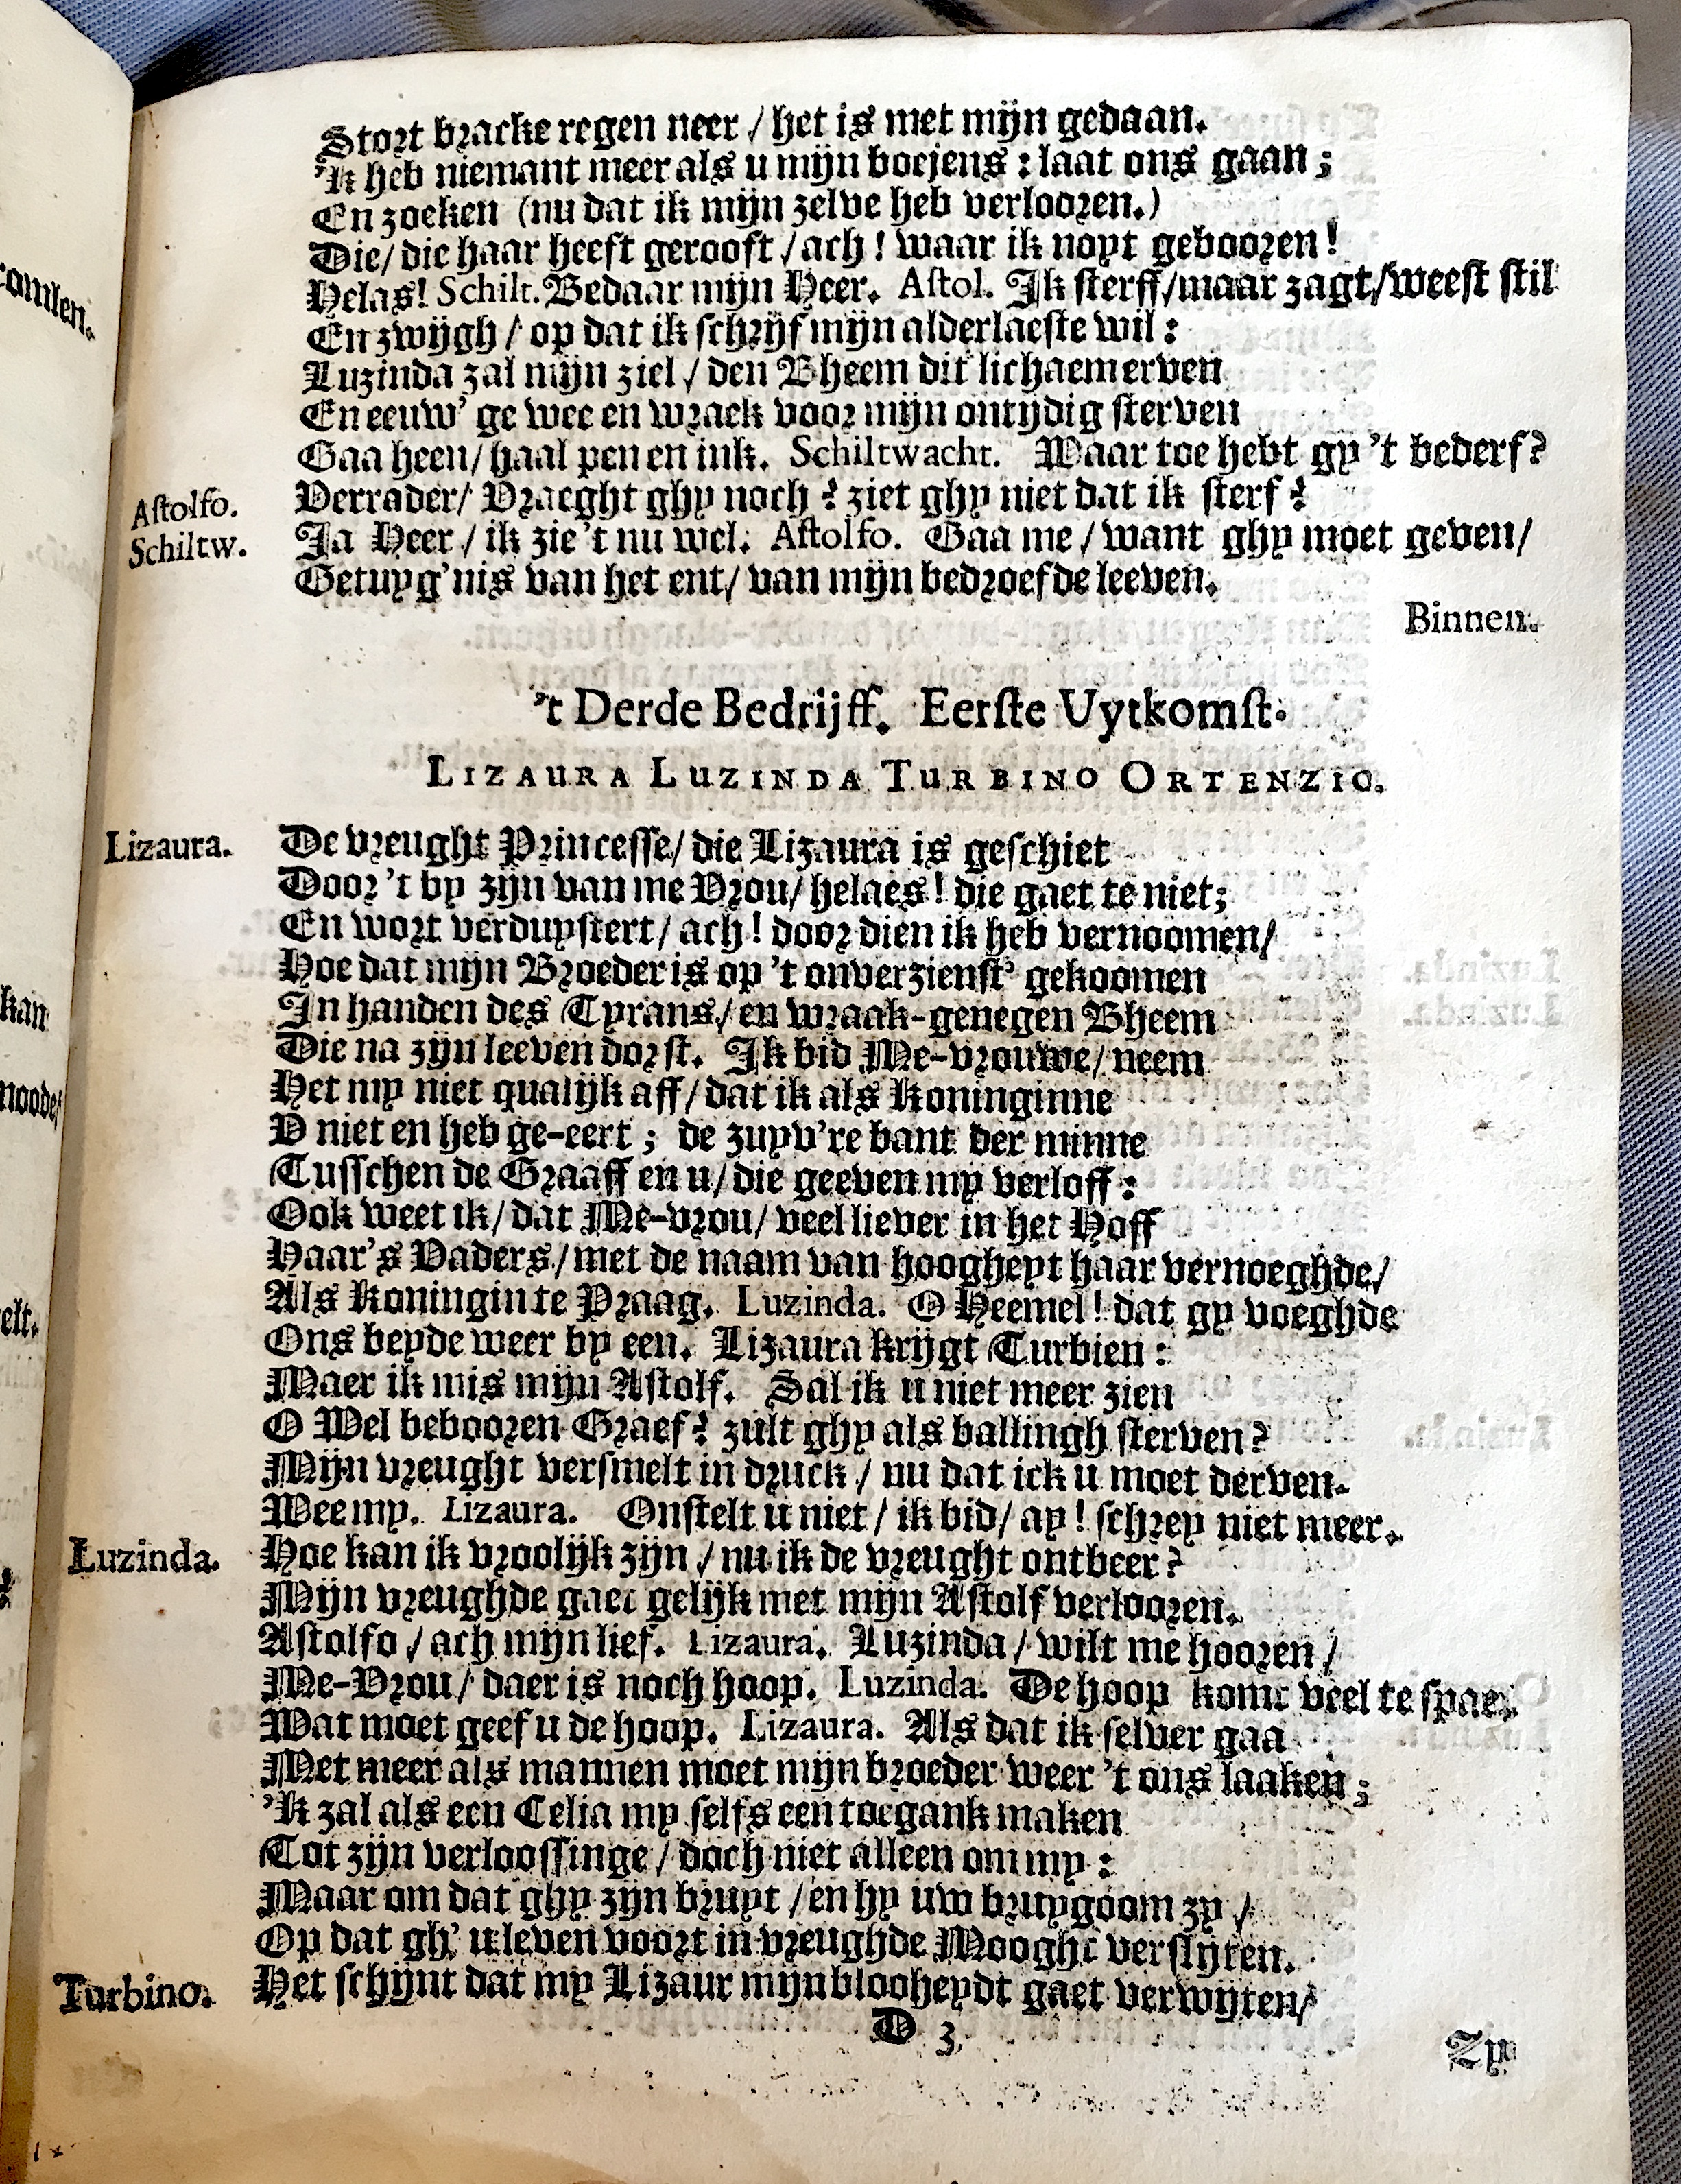 Stort bracke regen neer / het is met mijn gedaan.
'k heb niemant meer als u mijn boejens : laat ons gaan ;
En zoeken (nu dat ik mijn zelve heb verlooren.)
Die / die haar heeft gerooft / ach ! waar ik noyt gebooren !
Helas ! Schilt. Bedaar mijn Heer. Astol. Ik sterff / maar zagt / weest stil
En zwijgh / op dat ik schrijf mijn alderlaeste wil :
Luzinda zal mijn ziel / den Bheem dit lichaem erven
En eeuw' ge wee en wraek voor mijn ontydig sterven
Gaa heen / haal pen en ink. Schiltwacht. Waar toe hebt gy 't bederf ?
Astolfo. Verrader / Vraeght ghy noch ? ziet ghy niet dat ik sterf ?
Schiltw. Ja Heer / ik zie 't nu wel. Astolfo. Gaa me / want ghy moet geven /
Getuyg'nis van het ent / van mijn bedroefde leeven.
Binnen.
't Derde Bedrijff. Eerste Uytkomst.
LIZAURA LUZINDA TURBINO ORTENZIO.
Lizaura. De vreught Princesse / die Lizaura is geschiet
Door 't by zijn van me Vrou / helaes ! die gaet te niet ;
En wort verduystert / ach ! door dien ik heb vernoomen /
Hoe dat mijn Broeder is op 't onverzienst' gekoomen
In handen des Tyrans / en wraak-genegen Bheem
Die na zijn leeven dorst. Ik bid Me-vrouwe / neem
Het my niet qualijk aff / dat ik als Koninginne
U niet en heb ge-eert ; de zuyv're bant der minne
Tusschen de Graaff en u / die geeven my verloff :
Ook weet ik / dat Me-vrou / veel liever in het Hoff
Haar's Vaders / met de naam van hoogheyt haar vernoeghde /
Als Koningin te Praag. Luzinda. O Heemel ! dat gy voeghde
Ons beyde weer by een. Lizaura krijgt Turbien :
Maer ik mis mijn Astolf. Sal ik u niet meer zien
O Wel bebooren Graef ? zult ghy als ballingh sterven ?
Mijn vreught versmelt in druck / nu dat ick u moet derven.
Wee my. Lizaura. Onstelt u niet / ik bid / ay ! schrey niet meer.
Luzinda. Hoe kan ik vroolijk zijn / nu ik de vreught ontbeer ?
Mijn vreughde gaet gelijk met mijn Astolf verlooren.
Astolfo / ach mijn lief. Lizaura. Luzinda / wilt me hooren /
Me-Vrou / daer is noch hoop. Luzinda. De hoop komt veel te spae.
Wat moet geef u de hoop. Lizaura. Als dat ik selver gaa
Met meer als mannen moet mijn broeder weer 't ons laaken ;
'k zal als een Celia my selfs een toegank maken
Tot zijn verloossinge / doch niet alleen om my :
Maar om dat ghy zijn bruyt / en hy uw bruygoom zy /
Op dat gh' u leven voort in vreughde Mooght verslyten.
Turbino. Het schijnt dat my Lizaur mijn blooheydt gaet verwijten /
D 3
Zy